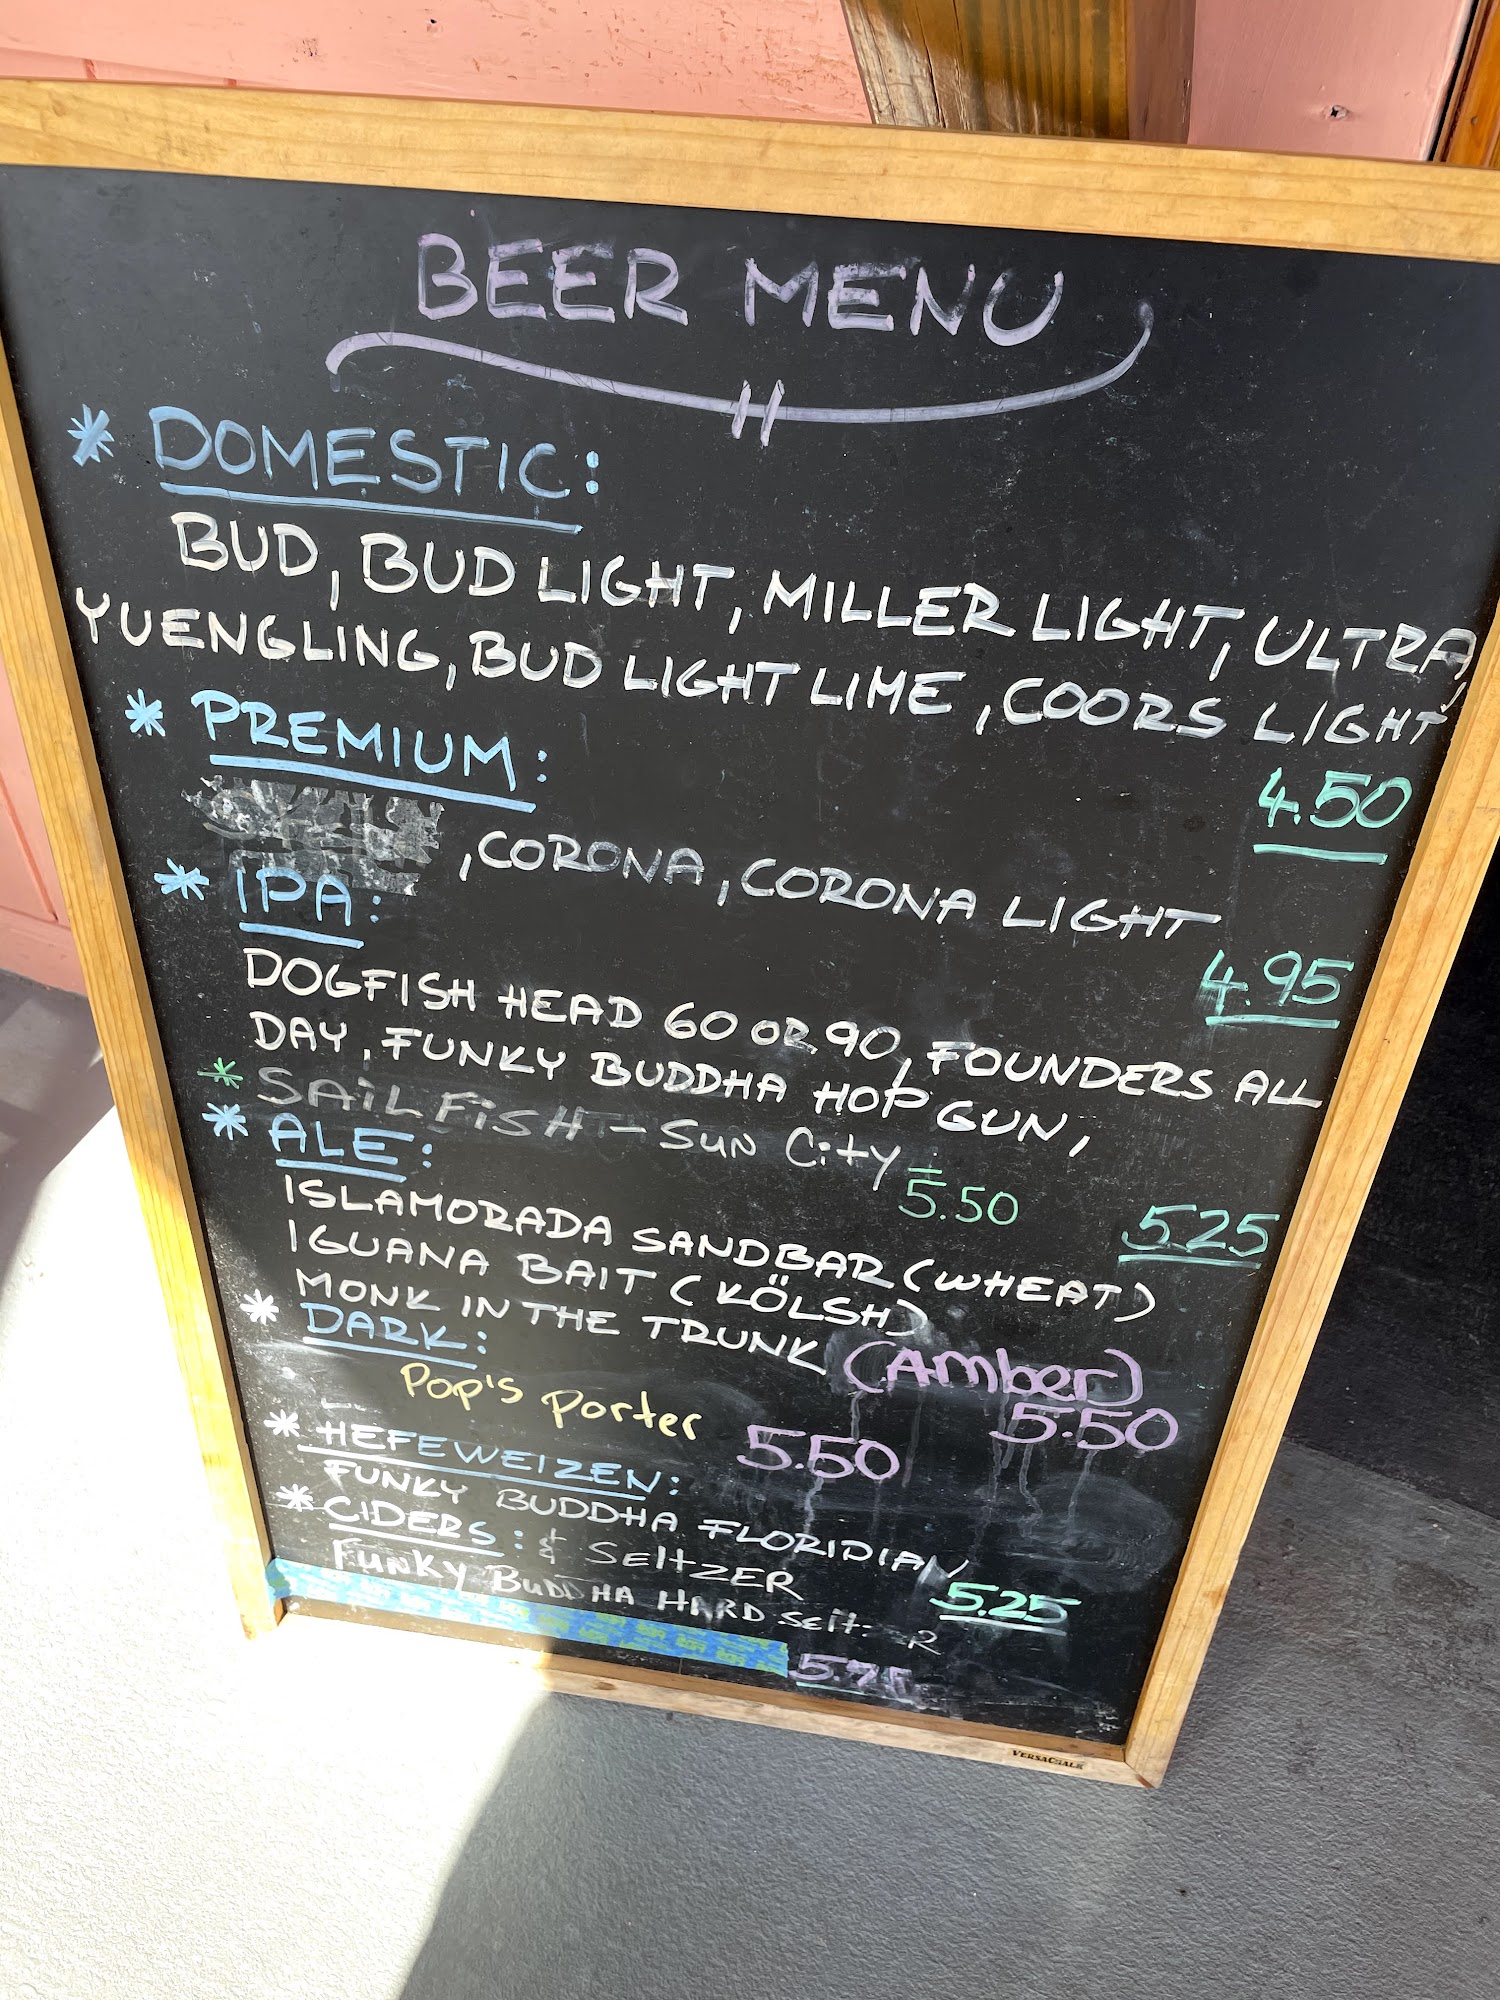 BEER MENU
* DOMESTIC:
BUD, BUD LIGHT, MILLER LIGHT, ULTRA,
YUENGLING, BUD LIGHT LIME, COORS LIGHT
4.50
* PREMIUM:
, CORONA, CORONA LIGHT
4.95
* IPA:
DOGFISH HEAD 60 OR 90, FOUNDERS ALL
DAY, FUNKY BUDDHA HOP GUN,
* SAiLFiSH - SUN City -
5.50 5.25
* ALE:
ISLAMORADA SANDBAR (WHEAT)
IGUANA BAIT (KÖLSH)
MONK IN THE TRUNK (Amber)
5.50
* DARK:
Pop's porter 5.50
* HEFEWEIZEN:
FUNKY BUDDHA FLORIDIAN
5.25
* CIDERS: & SEltZER
FUNKY BUDDHA HARD
VERSACHALK